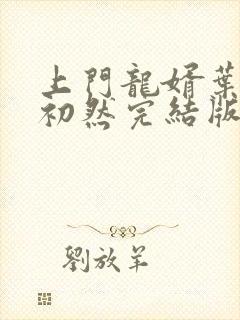 上門龍婿葉
初然完結版
劉放羊